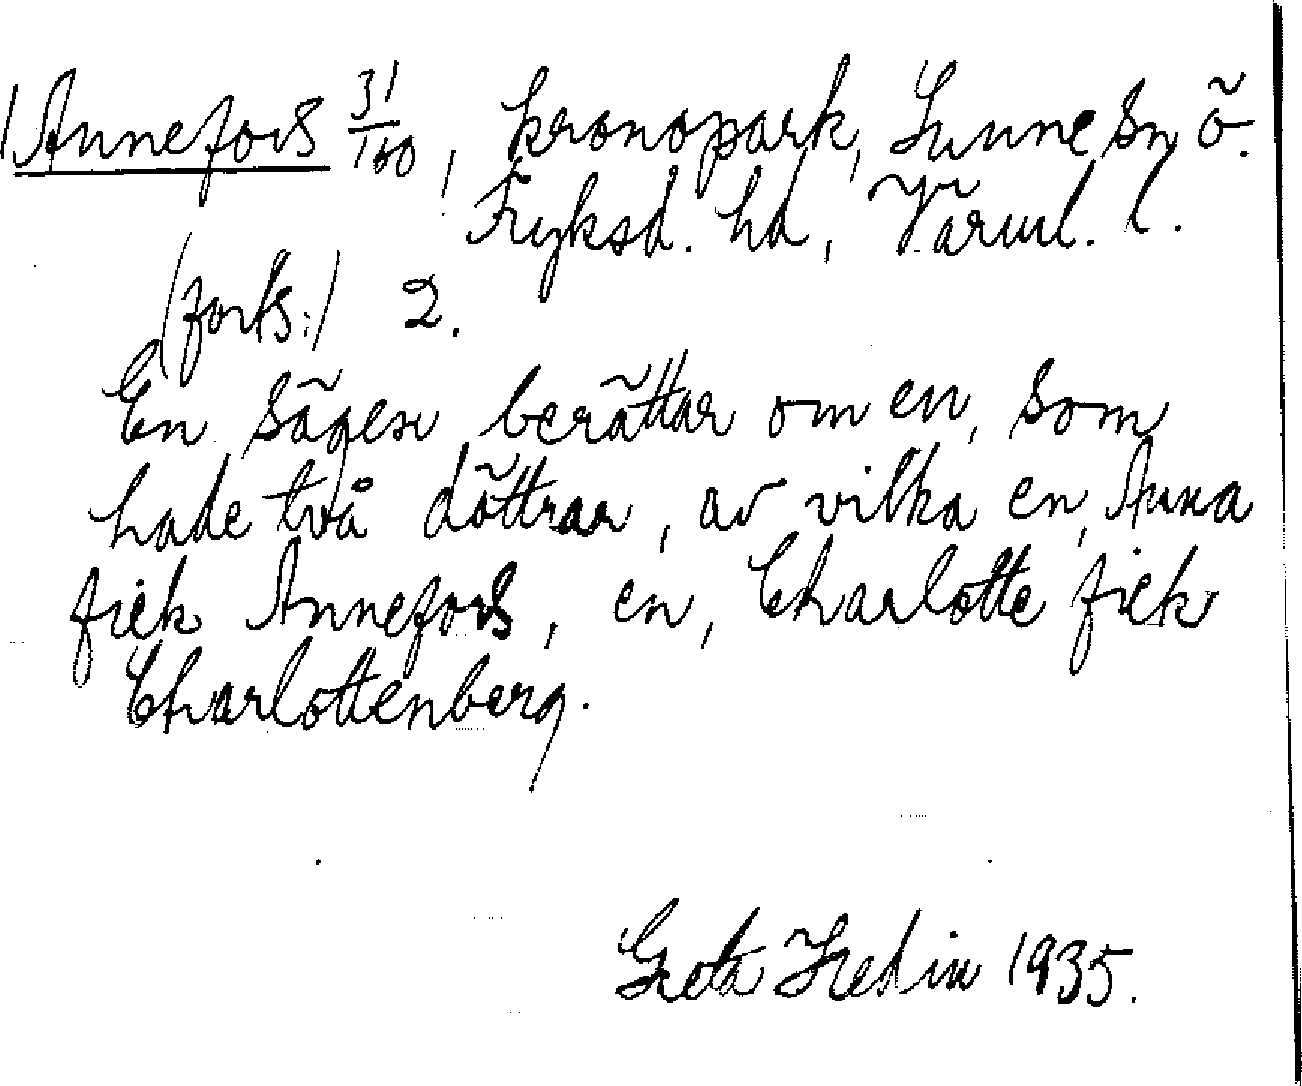 Annefors 31/160, kronopark, Sunne sn, Ö.
Fryksd. hd, Värml. l.
(forts.) 2.
En sägen berättar om en, som
hade två döttrar, av vilka en, Anna
fick Annefors, en, Charlotte fick
Charlottenberg.
Greta Hedin 1935.